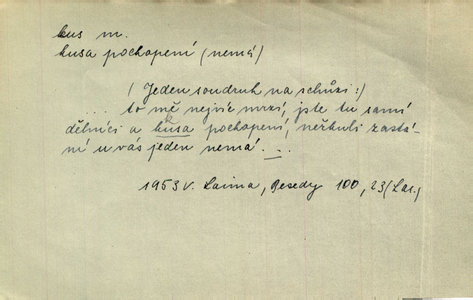 kus m.
kusa pochopení (nemá)
(Jeden soudruh na schůzi:)
... to mě nejvíc mrzí, jste tu samí
dělníci a kusa pochopení, neřkuli zastá-
ní u vás jeden nemá. ...
1953 V. Lacina, Besedy 100, 23 (Lac.)